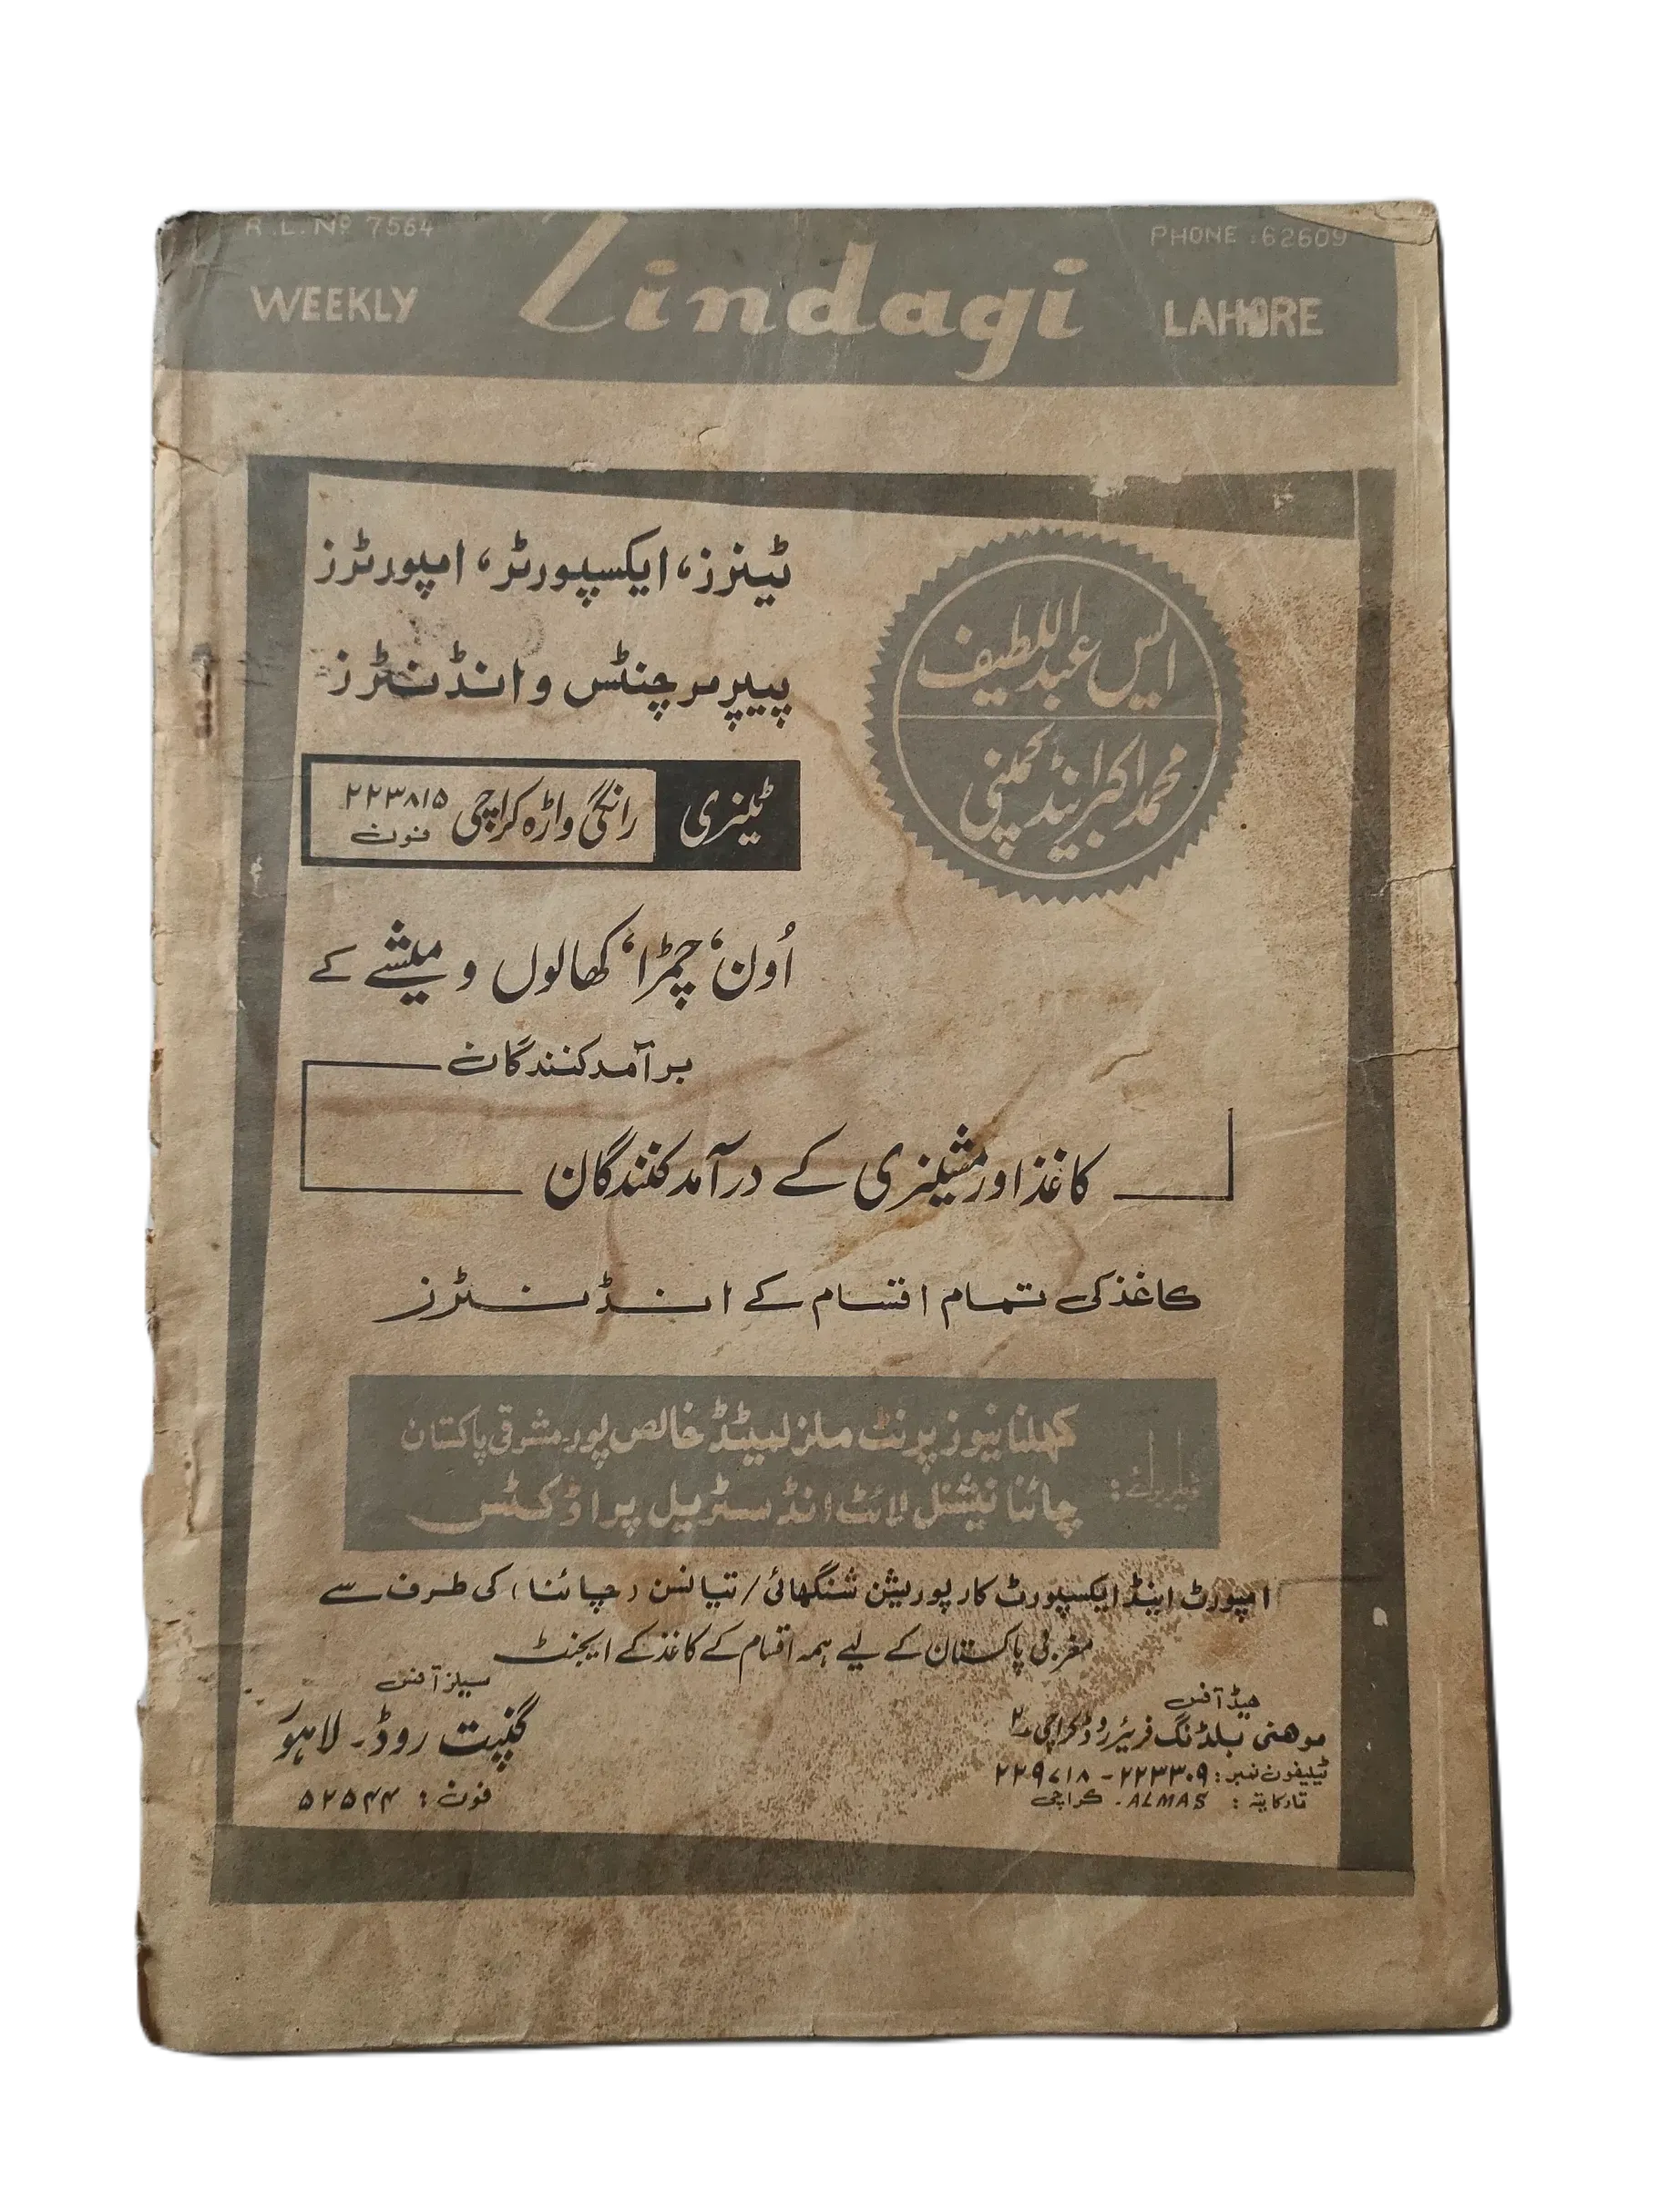 R.L. No 7564
PHONE : 62609
WEEKLY Zindagi LAHORE
ایس عبداللطیف
محمد اکبر اینڈ کمپنی
ٹینرز، ایکسپورٹر، امپورٹرز
پیپر مرچنٹس و انڈنٹرز
ٹینری رانگی واڑہ کراچی ۲۲۳۸۱۵
فون
اُون، چمڑا، کھالوں و میشے کے
برآمد کنندگان
کاغذ اور مشینری کے درآمد کنندگان
کاغذ کی تمام اقسام کے انڈنٹرز
کھلنا نیوز پرنٹ ملز لمیٹڈ خالص پور۔مشرقی پاکستان
چائنا نیشنل لائٹ انڈسٹریل پراڈکٹس
امپورٹ اینڈ ایکسپورٹ کارپوریشن شنگھائی / تیانسن (چائنا) کی طرف سے
مغربی پاکستان کے لیے ہمہ اقسام کے کاغذ کے ایجنٹ
ہیڈ آفس
موھنی بلڈنگ فریئر روڈ کراچی ۲
ٹیلیفون نمبر: ۲۲۳۳۰۹ - ۲۲۹۷۱۸
تار کا پتہ : ALMAS - کراچی
سیلز آفس
گنپت روڈ - لاہور
فون : ۵۲۵۴۴